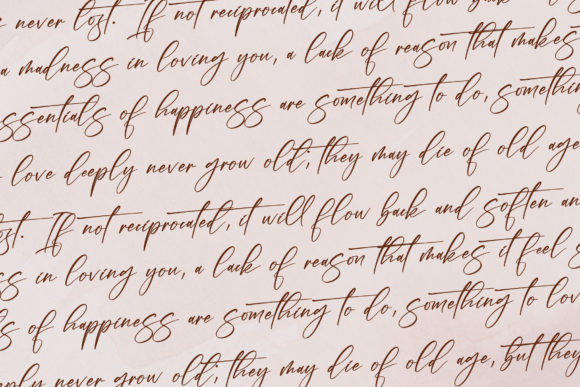 never lost. If not reciprocated, it will flow
a madness in loving you, a lack of reason that makes
essentials of happiness are something to do, something
love deeply never grow old; they may die of old age
lost. If not reciprocated, it will flow back and soften an
ss in loving you, a lack of reason that makes it feel
ls of happiness are something to do, something to lov
eply never grow old; they may die of old age, but they